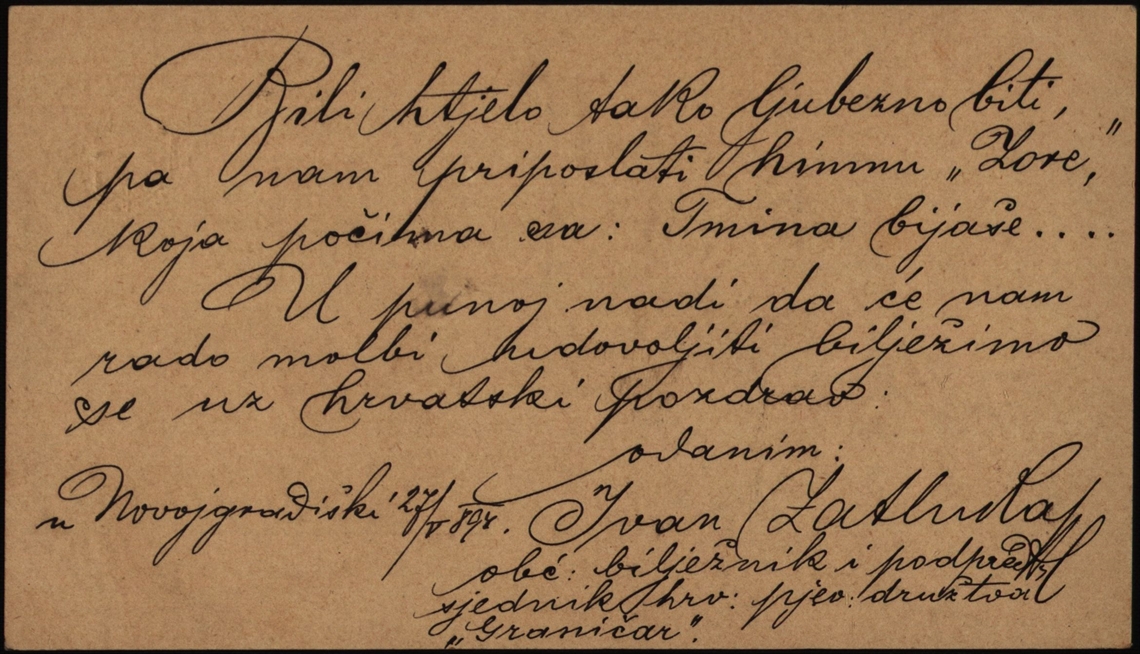 Bili htjelo tako ljubezno biti,
pa nam priposlati himnu „Zore,"
koja počima sa: Tmina bijaše....
U punoj nadi da će nam
rado molbi udovoljiti bilježimo
se uz hrvatski pozdrav:
odanim:
u Novojgradiški 27/V 89
Ivan
obć: bilježnik i podpred
sjednik hrv: pjev: družtva
„Graničar".